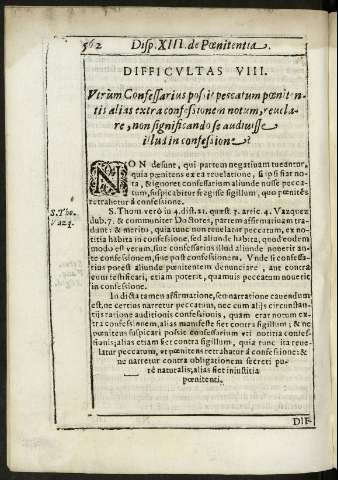 562 Disp. XIII. de Pœnitentia.
DIFFICVLTAS VIII.
Vtrùm Confessarius possit peccatum pœniten-
tis alias extra confessionem notum, reuela-
re, non significando se audiuisse
illud in confessione?
NON desunt, qui partem negatiuam tueantur,
quia pœnitens ex ea reuelatione, si ipsi fiat no-
ta, & ignoret confessarium aliunde nosse pecca-
tum, suspicabitur fregisse sigillum, quo pœnitẽs
retrahetur á confessione.
S. Tho.
Vazq.
S. Thom. verò in 4. dist. 21. quæst. 3. artic. 4. Vazquez
dub. 7. & communiter Doctores, partem affirmatiuam tra-
dant: & meritò, quia tunc non reuelatur peccatum, ex no-
titia habita in confessione, sed aliunde habita, quod eodem
modo est verum, siue confessarius illud aliunde nouerit an-
te confessionem, siue post confessionem. Vnde si confessa-
rius potest aliunde pœnitentem denuntiare, aut contra
eum testificari, etiam poterit, quamuis peccatum nouerit
in confessione.
In dicta tamen affirmatione, seu narratione cauendum
est, ne certius narretur peccatum, nec cum aliis circunstan-
tijs ratione auditionis confessionis, quam erat notum ex-
tra confessionem, alias manifestè fiet contra sigillum; & ne
pœnitens suspicari possit confessarium vti notitia confes-
sionis; alias etiam fiet contra sigillum, quia tunc ita reue-
latur peccatum, vt pœnitens retrahatur á confessione: &
ne narretur contra obligationem secreti pu-
rè naturalis; alias fiet iniustitia
pœnitenti.
DIF-